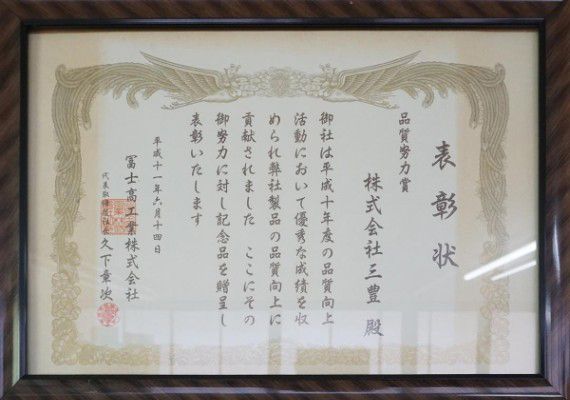 表彰状
品質努力賞
株式会社三豊 殿
御社は平成十年度の品質向上
活動において優秀な成績を収
められ弊社製品の品質向上に
貢献されました ここにその
御努力に対し記念品を贈呈し
表彰いたします
平成十一年六月十四日
冨士高工業株式会社
代表取締役社長 久下章次